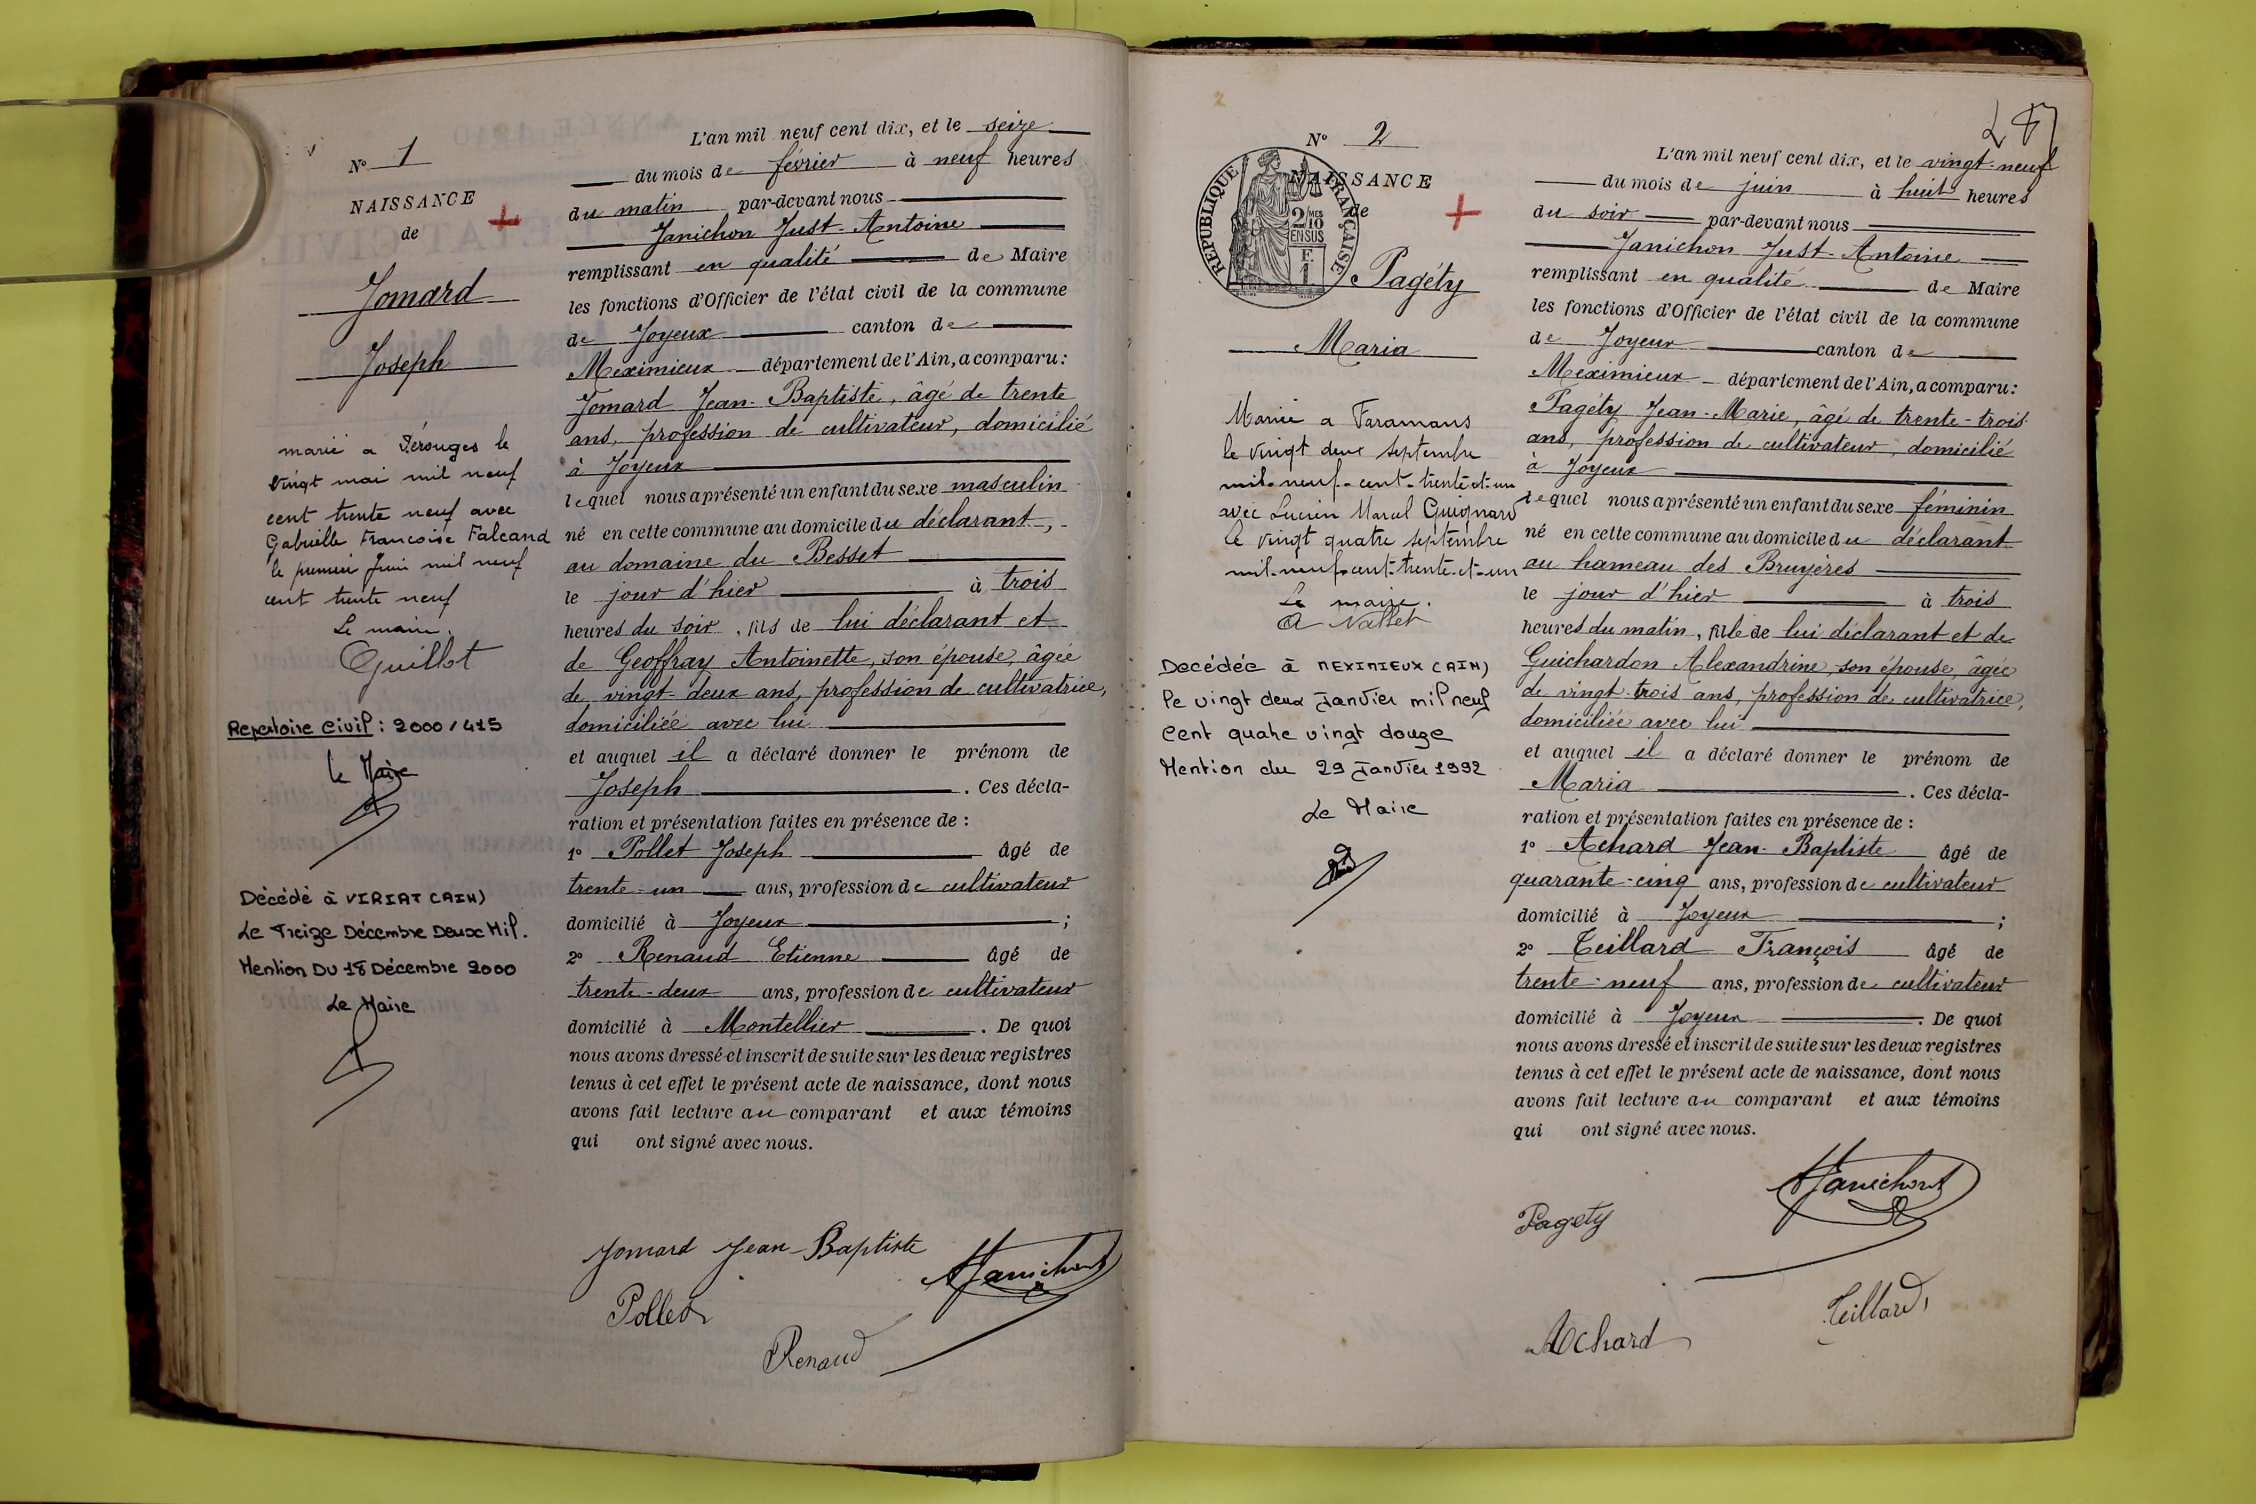 N° 1
NAISSANCE
de
Jomard
Joseph
marié a Pérouges le
vingt mai mil neuf
cent trente neuf avec
Gabrielle Francoise Falcand
le premier Juin mil neuf
cent trente neuf
Le maire.
Guillot
Repertoire Civil : 2000 / 415
Le Maire
Décédé à VIRIAT (AIN)
Le Treize Décembre Deux Mil.
Mention Du 18 Décembre 2000
Le Maire
L'an mil neuf cent dix, et le seize
du mois de février à neuf heures
du matin par-devant nous
Janichon Just-Antoine
remplissant en qualité de Maire
les fonctions d'Officier de l'état civil de la commune
de Joyeux canton de
Meximieux département de l'Ain, a comparu :
Jomard Jean-Baptiste, âgé de trente
ans, profession de cultivateur, domicilié
à Joyeux
lequel nous a présenté un enfant du sexe masculin
né en cette commune au domicile du déclarant,
au domaine du Besset
le jour d'hier à trois
heures du soir, fils de lui déclarant et
de Geoffray Antoinette, son épouse, âgée
de vingt-deux ans, profession de cultivatrice,
domiciliée avec lui
et auquel il a déclaré donner le prénom de
Joseph. Ces décla-
ration et présentation faites en présence de :
1° Pollet Joseph âgé de
trente-un ans, profession de cultivateur
domicilié à Joyeux ;
2° Renaud Etienne âgé de
trente-deux ans, profession de cultivateur
domicilié à Montellier. De quoi
nous avons dressé et inscrit de suite sur les deux registres
tenus à cet effet le présent acte de naissance, dont nous
avons fait lecture au comparant et aux témoins
qui ont signé avec nous.
Jomard Jean-Baptiste
Janichon
Pollet
Renaud
2
N° 2
NAISSANCE
de
RÉPUBLIQUE FRANÇAISE
2 MES
10
EN SUS
F.
1
Pagéty
Maria
Mariée a Faramans
le vingt deux septembre
mil-neuf-cent-trente-et-un
avec Lucien Marcel Guignard
le vingt quatre septembre
mil-neuf-cent-trente-et-un
Le maire.
A Nallet
Decédée à MEXIMIEUX (AIN)
le vingt deux Janvier mil neuf
Cent quatre vingt douze
Mention du 29 Janvier 1992
Le Maire
L'an mil neuf cent dix, et le vingt-neuf
du mois de juin à huit heures
du soir par-devant nous
Janichon Just-Antoine
remplissant en qualité de Maire
les fonctions d'Officier de l'état civil de la commune
de Joyeux canton de
Meximieux département de l'Ain, a comparu :
Pagéty Jean-Marie, âgé de trente-trois
ans, profession de cultivateur, domicilié
à Joyeux
lequel nous a présenté un enfant du sexe féminin
né en cette commune au domicile du déclarant
au hameau des Bruyères
le jour d'hier à trois
heures du matin, fille de lui déclarant et de
Guichardon Alexandrine, son épouse, âgée
de vingt-trois ans, profession de cultivatrice,
domiciliée avec lui
et auquel il a déclaré donner le prénom de
Maria. Ces décla-
ration et présentation faites en présence de :
1° Achard Jean-Baptiste âgé de
quarante-cinq ans, profession de cultivateur
domicilié à Joyeux ;
2° Teillard François âgé de
trente-neuf ans, profession de cultivateur
domicilié à Joyeux. De quoi
nous avons dressé et inscrit de suite sur les deux registres
tenus à cet effet le présent acte de naissance, dont nous
avons fait lecture au comparant et aux témoins
qui ont signé avec nous.
Janichon
Pagéty
Teillard
Achard